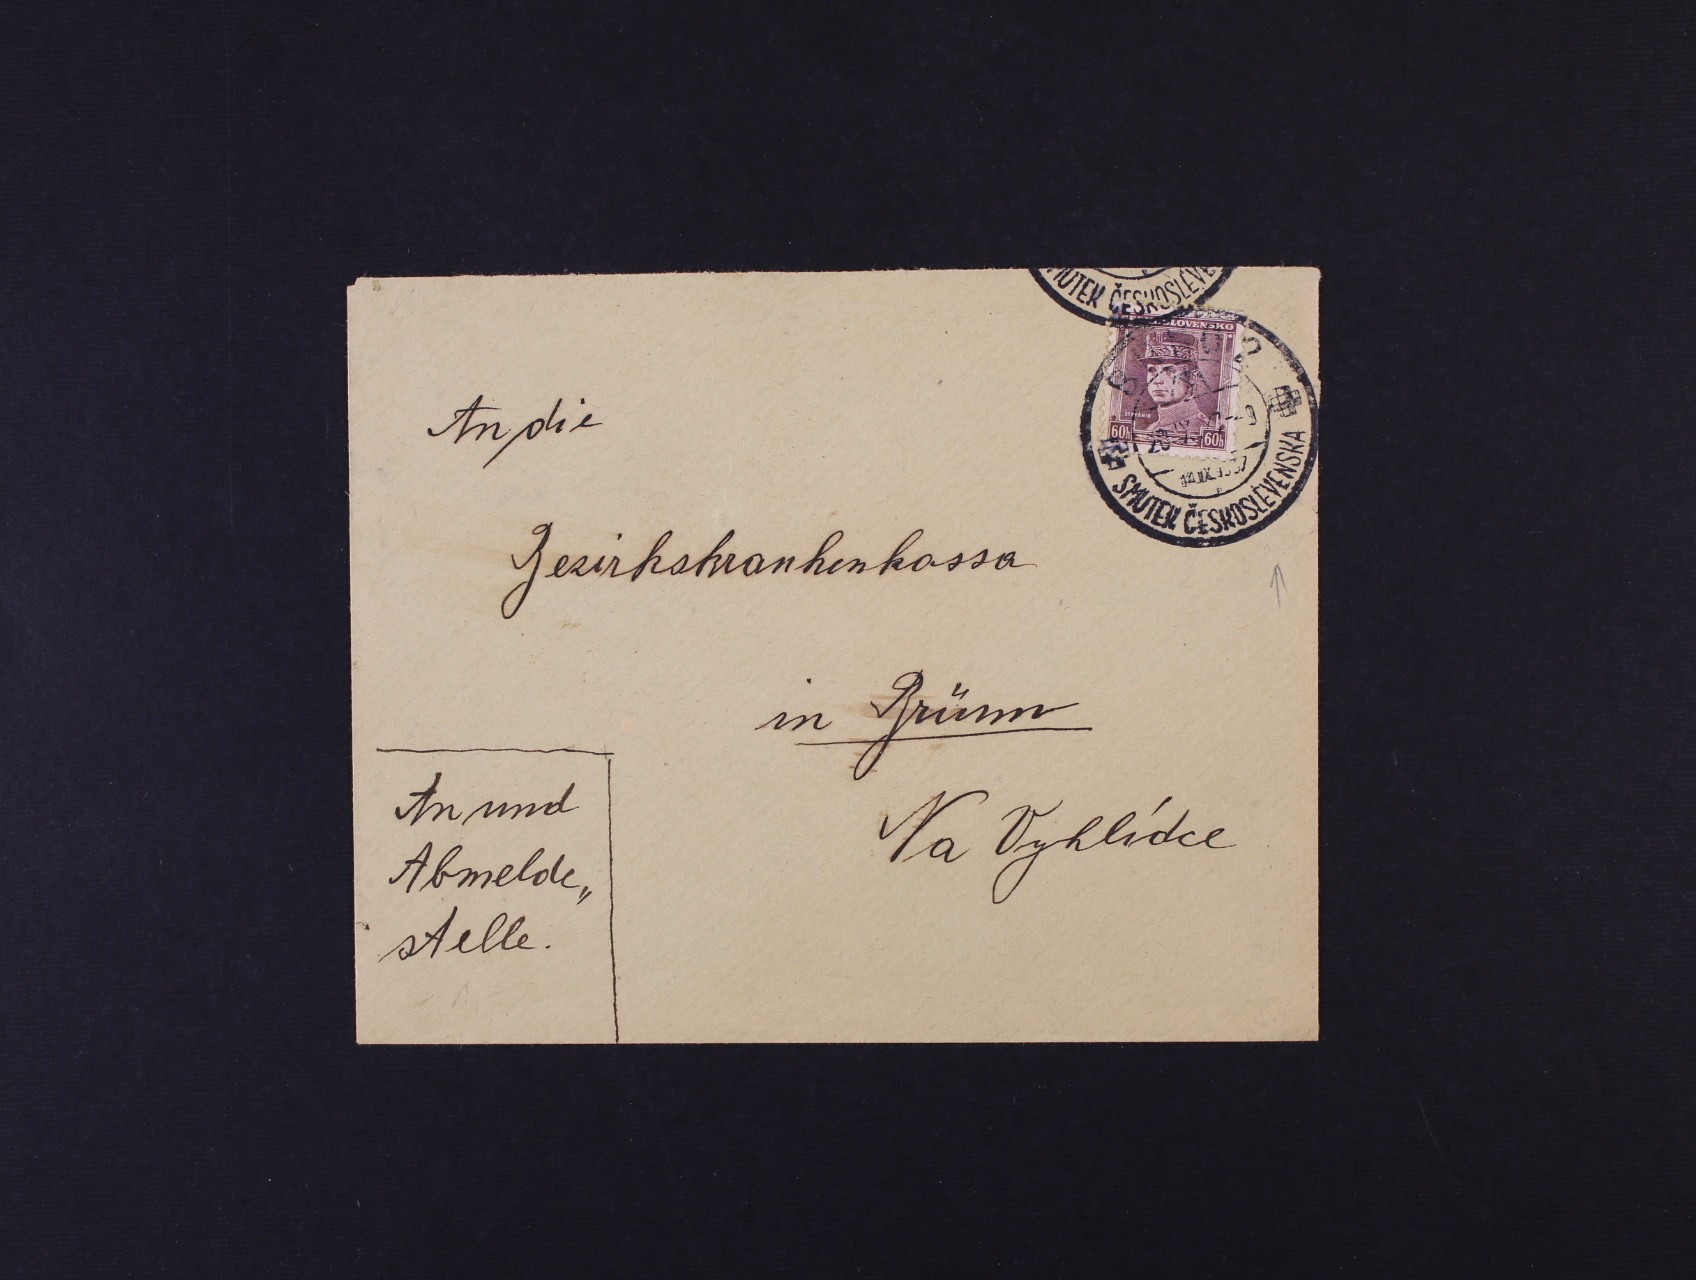 MUTEK ČESKOSLEVE
ČESKOSLOVENSKO
ŠTEFÁNIK
60h 60h
14.IX.1937
SMUTEK ČESKOSLEVENSKA
An die
Bezirkskrankenkassa
in Brünn
Na Vyhlídce
An und
Abmelde„
stelle.